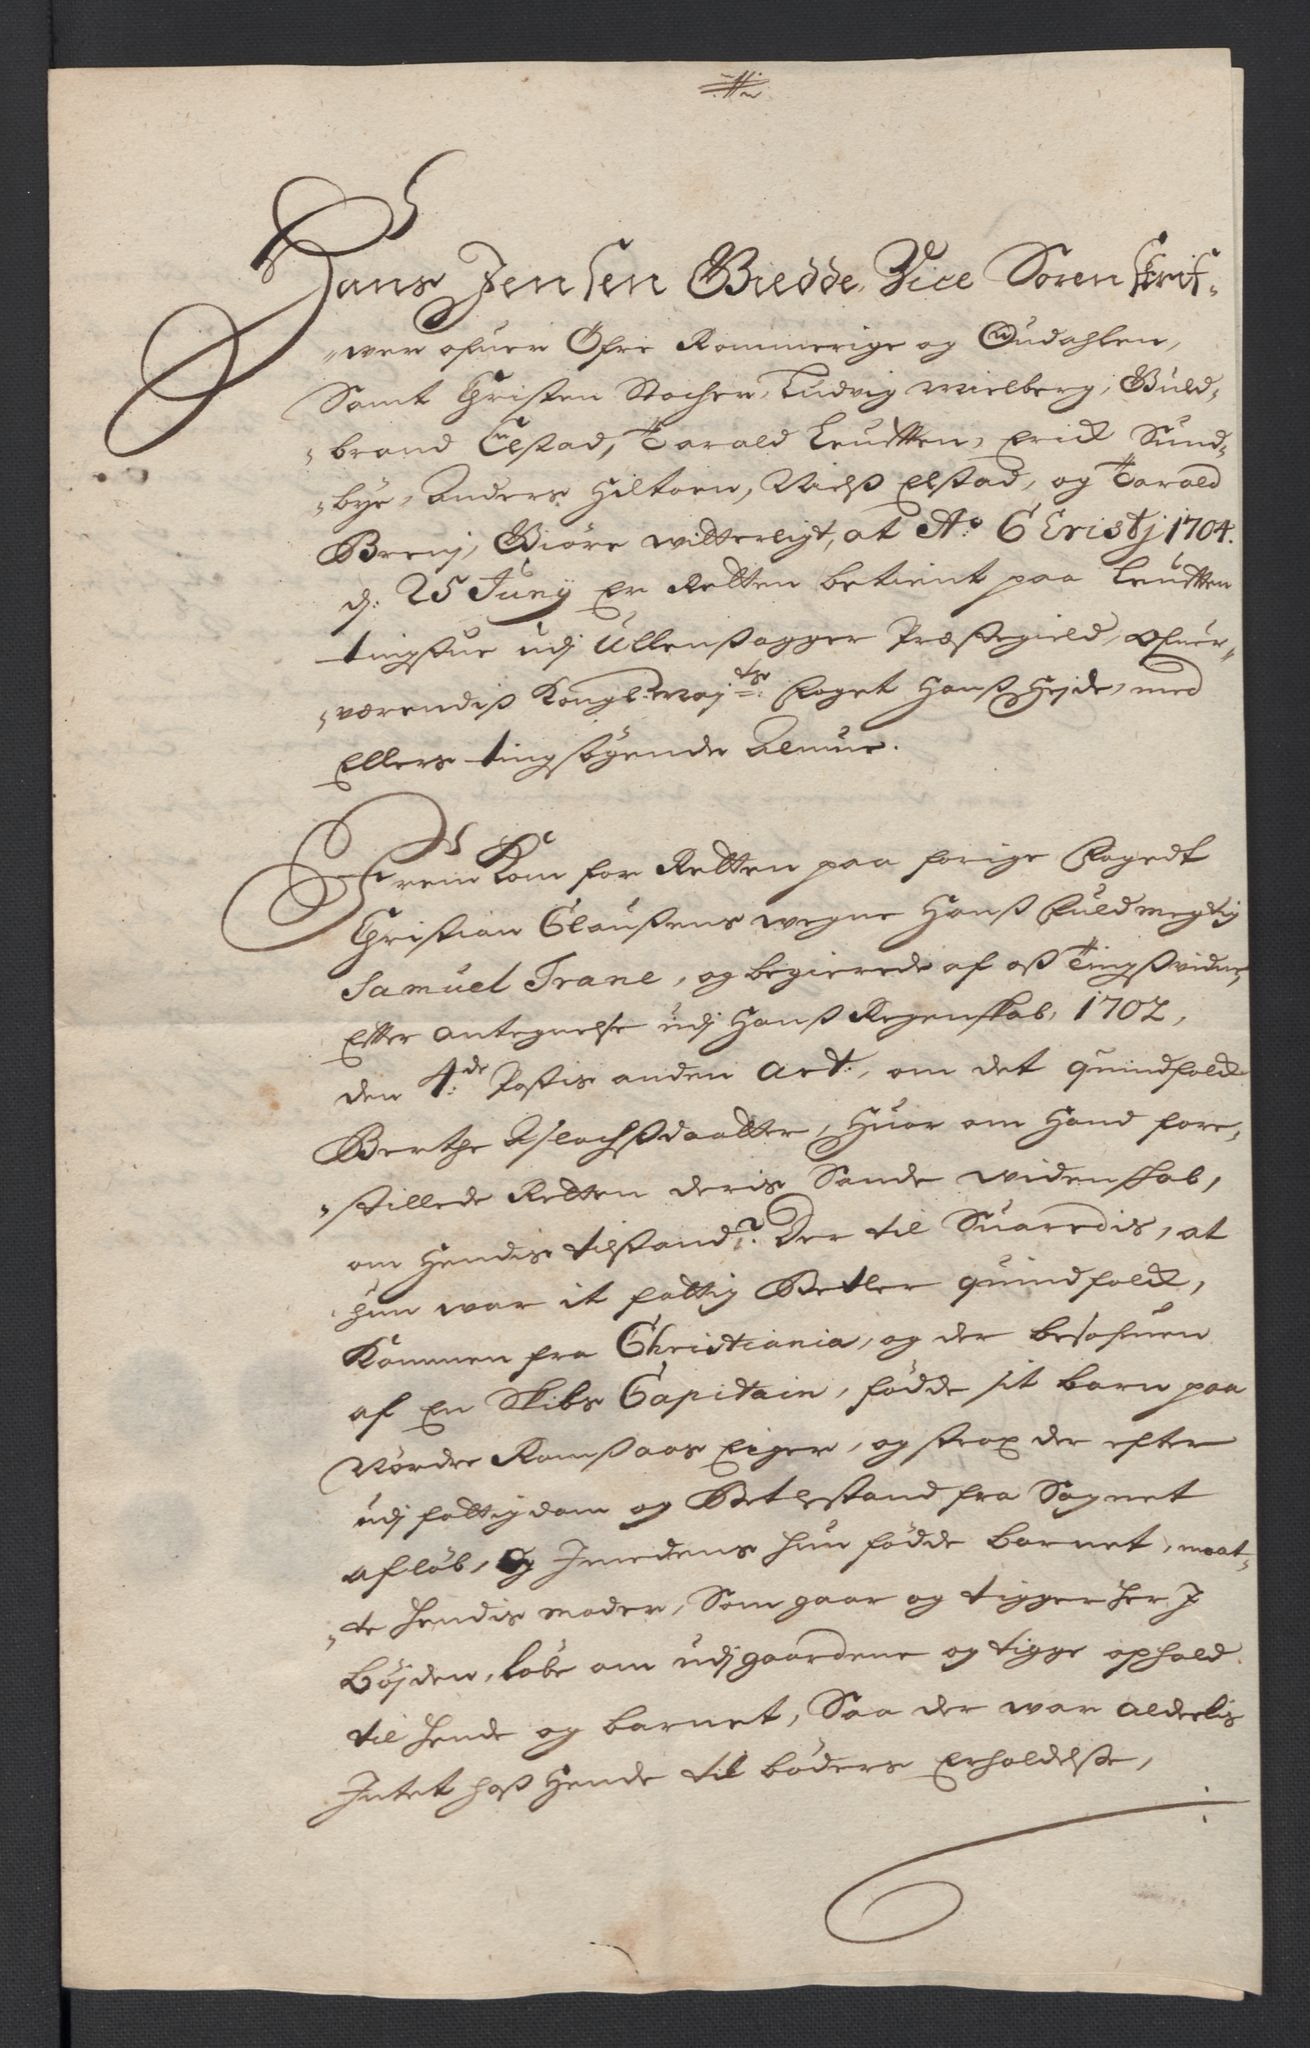 Hans Jensen Giedde, Vice Soren skrif-
wer ofuer Öfre Rommerige og Oudahlen,
Samt Christen Stocher, Ludvig Mielberg, Guld-
brand Elstad, Tarald Leudtten, Erick Sund-
bye, Anders Hiltoen, Nielß Elstad, og Tarald
Brenj, Giöre witterligt, at Ao Cristj 1704.
d: 25 Junij Er Retten betient paa Leudtten
tingstue udj Ullensagger Præstegield, ofuer-
værendiß Kongl: May:ts Foget Hanß Hejde, med
Ellers tingsögende Almue.
Frem Kom for Retten paa forige Fogedt
Christian Claußens wegne Hanß Fuldmegtig
Samuel Trane, og begierede af oß Tingßvidne,
Efter antegnelse udj Hanß Regenskab, 1702,
den 4:de Postis anden Act:, om det quindfolck
Berthe Aslachßdaatter, Huor om Hand fore-
stillede Retten deris Sande widenskab,
om Hendis tilstand? Der til Suaredis, at
hun war it fattig Betler quindfolck,
Kommen fra Christiania, og der besofuen
af En Skibs Capitain, födde sit barn paa
Nordre Ramßaas Eiger, og strax der efter
udj fattigdom og Betlestand fra Sognet
afløb, Og Imedens hun födde barnet, maat-
te Hendis moder, Som gaar og tigger her J
böjden, löbe om udj gaardene og tigge ophold
til hende og barnet, Saa der war alderlis
Intet hoß Hende til böders Erholdelße,